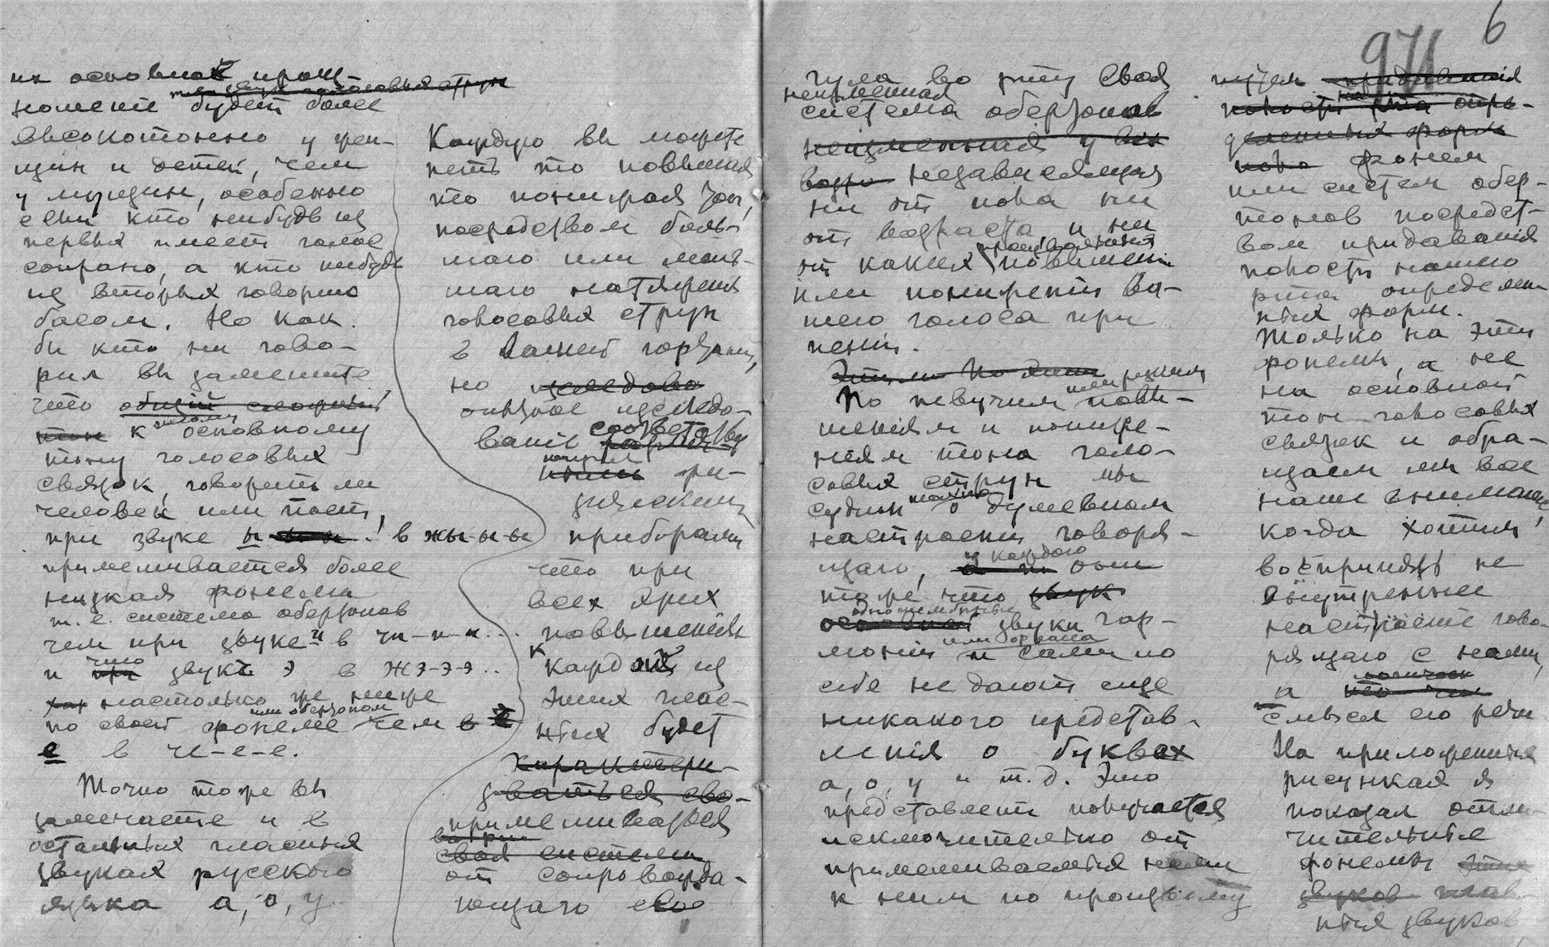 6
971
их основной произ-
ношенiе будет более
высокотонно у жен-
щин и детей, чем
у мужчин, особенно
если кто нибудь из
первых имеет голос
сопрано, а кто нибудь
из вторых говорит
басом. Но как
бы кто ни гово-
рил вы заметите
что общий
тон к основному
тону голосовых
связок, говорит ли
человек или поет,
при звуке ы в жы-ы-ы
примешивается более
низкая фонема
т. е. система обертонов
чем при звуке и в чи-и-и...
и что при звук э в жэ-э-э..
настолько же ниже
по своей фонеме или обертоном чем в
е в че-е-е.
Точно тоже вы
замечаете и в
остальных гласных
звуках русского
языка а, о, у
голосовых струн
Каждую вы можете
петь то повышая
то понижая тон,
посредством боль-
шаго или мень-
шаго натяжения
голосовых струн
в вашей гортани,
но
опытное изследо-
ванiе соответству
фи-
зическими
приборами
что при
всех этих
повышенiях
к каждой из
этих глас-
ных будет
характери-
зоваться сво-
примешиваться
своя система
от сопровожда-
ющаго свое
гула во рту своя
неизменная
система обертонов
неизменная у всех
независящая
ни от пола ни
от возраста, и ни
от каких произвольных повышенiй
или пониженiй ва-
шего голоса при
пенiи.
По певучим или резким повы-
шенiям и пониже-
нiям тона голо-
совых струн мы
судим только о душевном
настроенiи говоря-
щаго, у каждого
тоже что звук
звуки гар-
монiи или органа и сами по
себе не дают еще
никакого представ-
ленiя о буквах
а, о, у и т. д. Это
представленiе получается
исключительно от
примешиваемых нами
к ним по произволу
путем придаванiя
полости рта опре-
деленных форм
фонем
или систем обер-
тонов посредст-
вом придаванiя
полости нашего
рта определен
ных форм.
Только на эти
фонемы, а не
на основной
тон голосовых
связок и обра-
щаем мы все
наше вниманiе,
когда хотим
воспринять не
внутреннее
настроенiе гово-
рящаго с нами,
а
смысл его речи
На приложенных
рисунках я
показал отли-
чительные
фонемы этих
звуков глав-
ных звуков